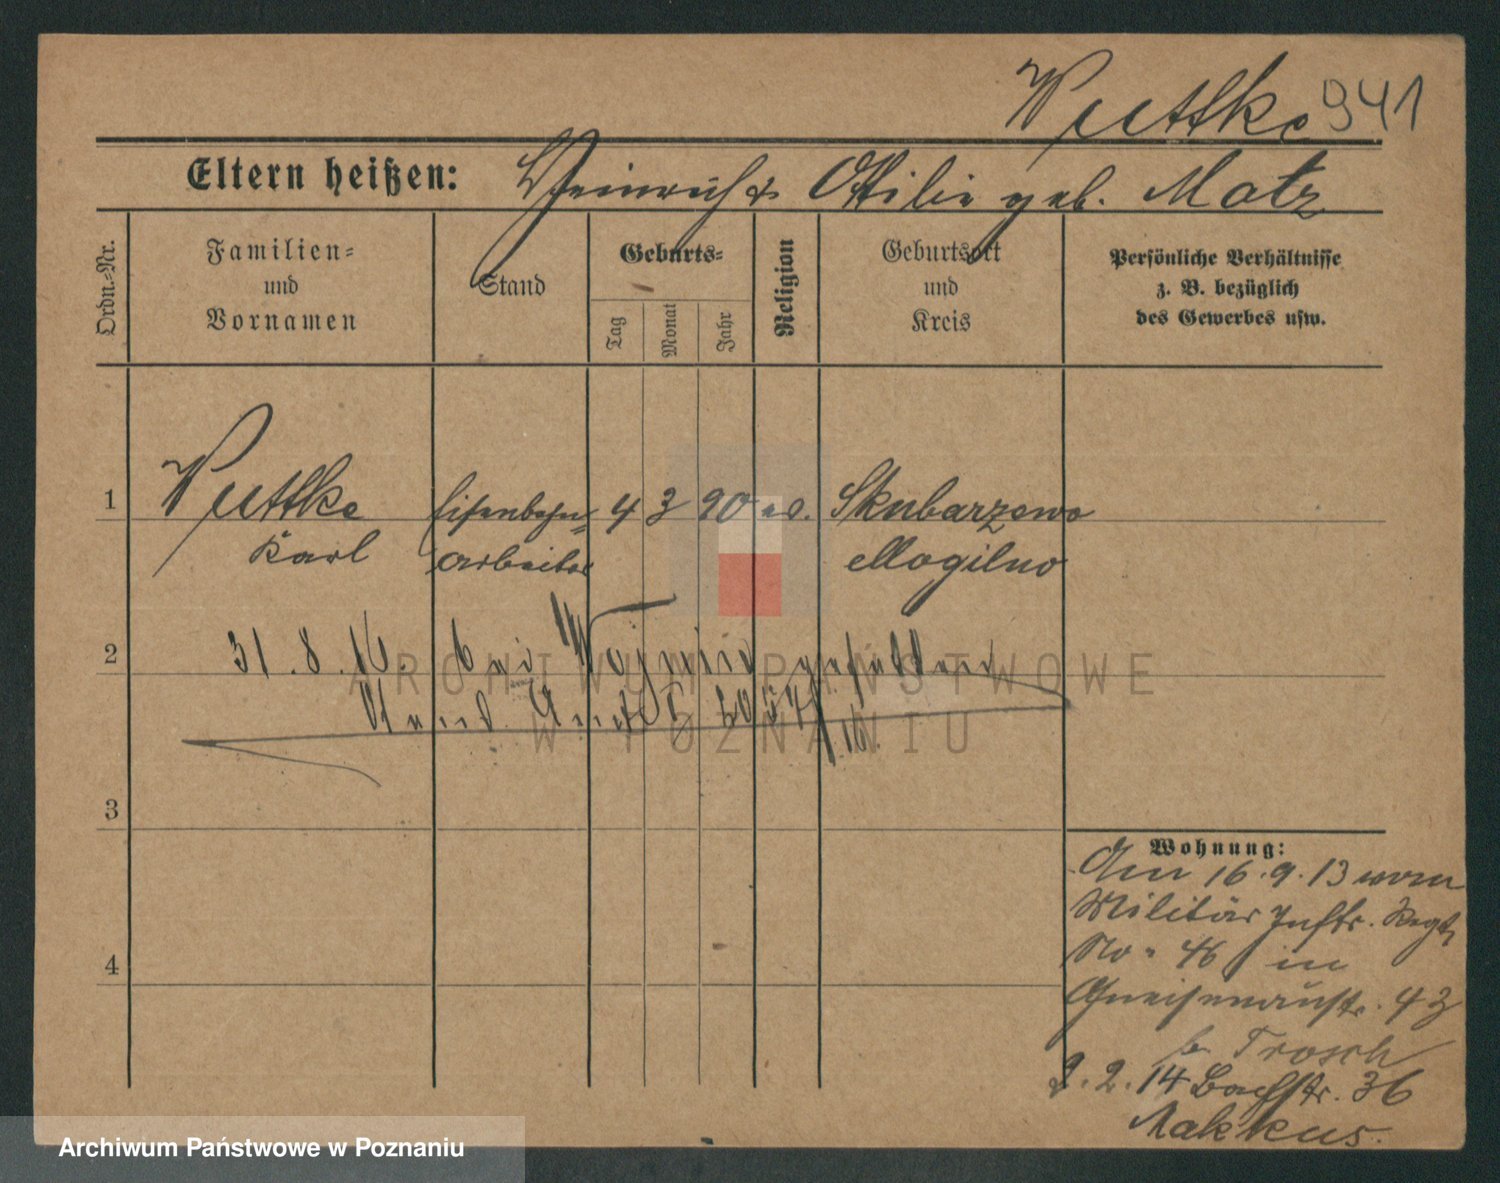 Wuttke 941
Eltern heißen: Heinrich & Ottilie geb. Motz
Ordn.-Nr.
Familien-
und
Vornamen
Stand
Geburts-
Tag
Monat
Jahr
Religion
Geburtsort
und
Kreis
Persönliche Verhältnisse
z. B. bezüglich
des Gewerbes usw.
1 Wuttke Eisenbahn= 4 3 90 ev. Skubarzewo
Karl arbeiter Mogilno
2 31.8.16. bei gefallen
16.
3
4
Wohnung:
Am 16.9.13 vom
Militär Inftr. Regt
No 46 in
Gneisenaustr. 43
b. Trosch
2.2.14 Bachstr. 36
Makkus.
ARCHIWUM PAŃSTWOWE
W POZNANIU
Archiwum Państwowe w Poznaniu